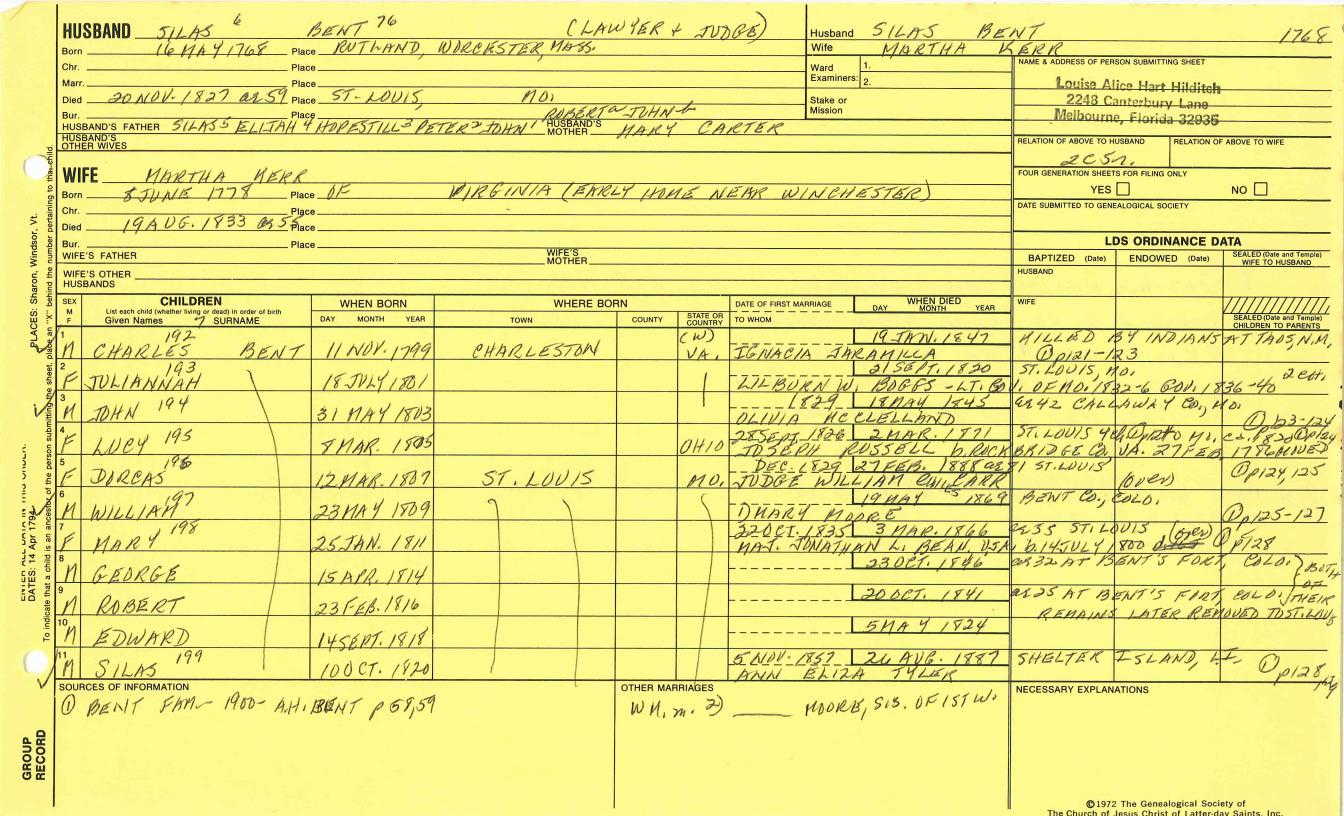 HUSBAND SILAS 6 BENT 76 (LAWYER + JUDGE)
Born 16 MAY 1768 Place RUTLAND, WORCESTER, MASS.
Chr. Place
Marr. Place
Died 20 NOV. 1827 ae 59 Place ST. LOUIS, MO.
Bur. Place ROBERT a JOHN b
HUSBAND'S FATHER SILAS 5 ELIJAH 4 HOPESTILL 3 PETER 2 JOHN 1 HUSBAND'S MOTHER MARY CARTER
HUSBAND'S OTHER WIVES
Husband SILAS BENT 1768
Wife MARTHA KERR
Ward Examiners: 1.
2.
Stake or Mission
NAME & ADDRESS OF PERSON SUBMITTING SHEET
Louise Alice Hart Hilditch
2248 Canterbury Lane
Melbourne, Florida 32935
RELATION OF ABOVE TO HUSBAND RELATION OF ABOVE TO WIFE
2C5r.
FOUR GENERATION SHEETS FOR FILING ONLY
YES NO
DATE SUBMITTED TO GENEALOGICAL SOCIETY
WIFE MARTHA KERR
Born 8 JUNE 1778 Place OF VIRGINIA (EARLY HOME NEAR WINCHESTER)
Chr. Place
Died 19 AUG. 1833 ae 55 Place
Bur. Place
WIFE'S FATHER WIFE'S MOTHER
WIFE'S OTHER HUSBANDS
LDS ORDINANCE DATA
BAPTIZED (Date) ENDOWED (Date) SEALED (Date and Temple) WIFE TO HUSBAND
HUSBAND
WIFE
SEALED (Date and Temple) CHILDREN TO PARENTS
SEX M F CHILDREN List each child (whether living or dead) in order of birth Given Names 7 SURNAME
WHEN BORN DAY MONTH YEAR
WHERE BORN TOWN COUNTY STATE OR COUNTRY
DATE OF FIRST MARRIAGE TO WHOM
WHEN DIED DAY MONTH YEAR
1 M CHARLES 192 BENT 11 NOV. 1799 CHARLESTON (W) VA. 19 JAN. 1847 IGNACIA JARAMILLA KILLED BY INDIANS AT TAOS, N.M. ① p121-123
2 F JULIANNAH 193 18 JULY 1801 21 SEPT. 1820 LILBURN W. BOGGS - LT. GOV. OF MO. 1832-6 GOV. 1836-40 ST. LOUIS, MO. 2 ch.
3 M JOHN 194 31 MAY 1803 1829 18 MAY 1845 OLIVIA McCLELLAND ae 42 CALLAWAY CO., MO. ① p123-124
4 F LUCY 195 8 MAR. 1805 OHIO 28 SEPT. 1826 2 MAR. 1871 JOSEPH RUSSELL b. ROCKBRIDGE CO., VA. 27 FEB. 1786 MOVED ST. LOUIS
5 F DORCAS 196 12 MAR. 1807 ST. LOUIS MO. DEC. 1829 27 FEB. 1888 ae 81 ST. LOUIS JUDGE WILLIAM CARR (over) ① p124, 125
6 M WILLIAM 197 23 MAY 1809 19 MAY 1869 BENT CO., COLO. ① MARY MOORE ① p125-127
7 F MARY 198 25 JAN. 1811 22 OCT. 1835 3 MAR. 1866 ae 55 ST. LOUIS (over) MAJ. JONATHAN L. BEAN, USA b. 14 JULY 1800 ① p128
8 M GEORGE 15 APR. 1814 23 OCT. 1846 ae 32 AT BENT'S FORT, COLO. } BOTH OF
9 M ROBERT 23 FEB. 1816 20 OCT. 1841 ae 25 AT BENT'S FORT, COLO. } THEIR REMAINS LATER REMOVED TO ST. LOUIS
10 M EDWARD 14 SEPT. 1818 5 MAY 1824
11 M SILAS 199 10 OCT. 1820 5 NOV. 1857 26 AUG. 1887 ANN ELIZA TYLER SHELTER ISLAND, L.I. ① p128
SOURCES OF INFORMATION
① BENT FAM. - 1900 - A.H. BENT p 58,59
OTHER MARRIAGES
WM. m. 2) ____ MOORE, SIS. OF 1ST W.
NECESSARY EXPLANATIONS
©1972 The Genealogical Society of
The Church of Jesus Christ of Latter-day Saints, Inc.
GROUP RECORD
ENTER ALL DATA IN THIS ORDER:
DATES: 14 Apr 1794 PLACES: Sharon, Windsor, Vt.
To indicate that a child is an ancestor of the person submitting the sheet, place an "X" behind the number pertaining to that child.